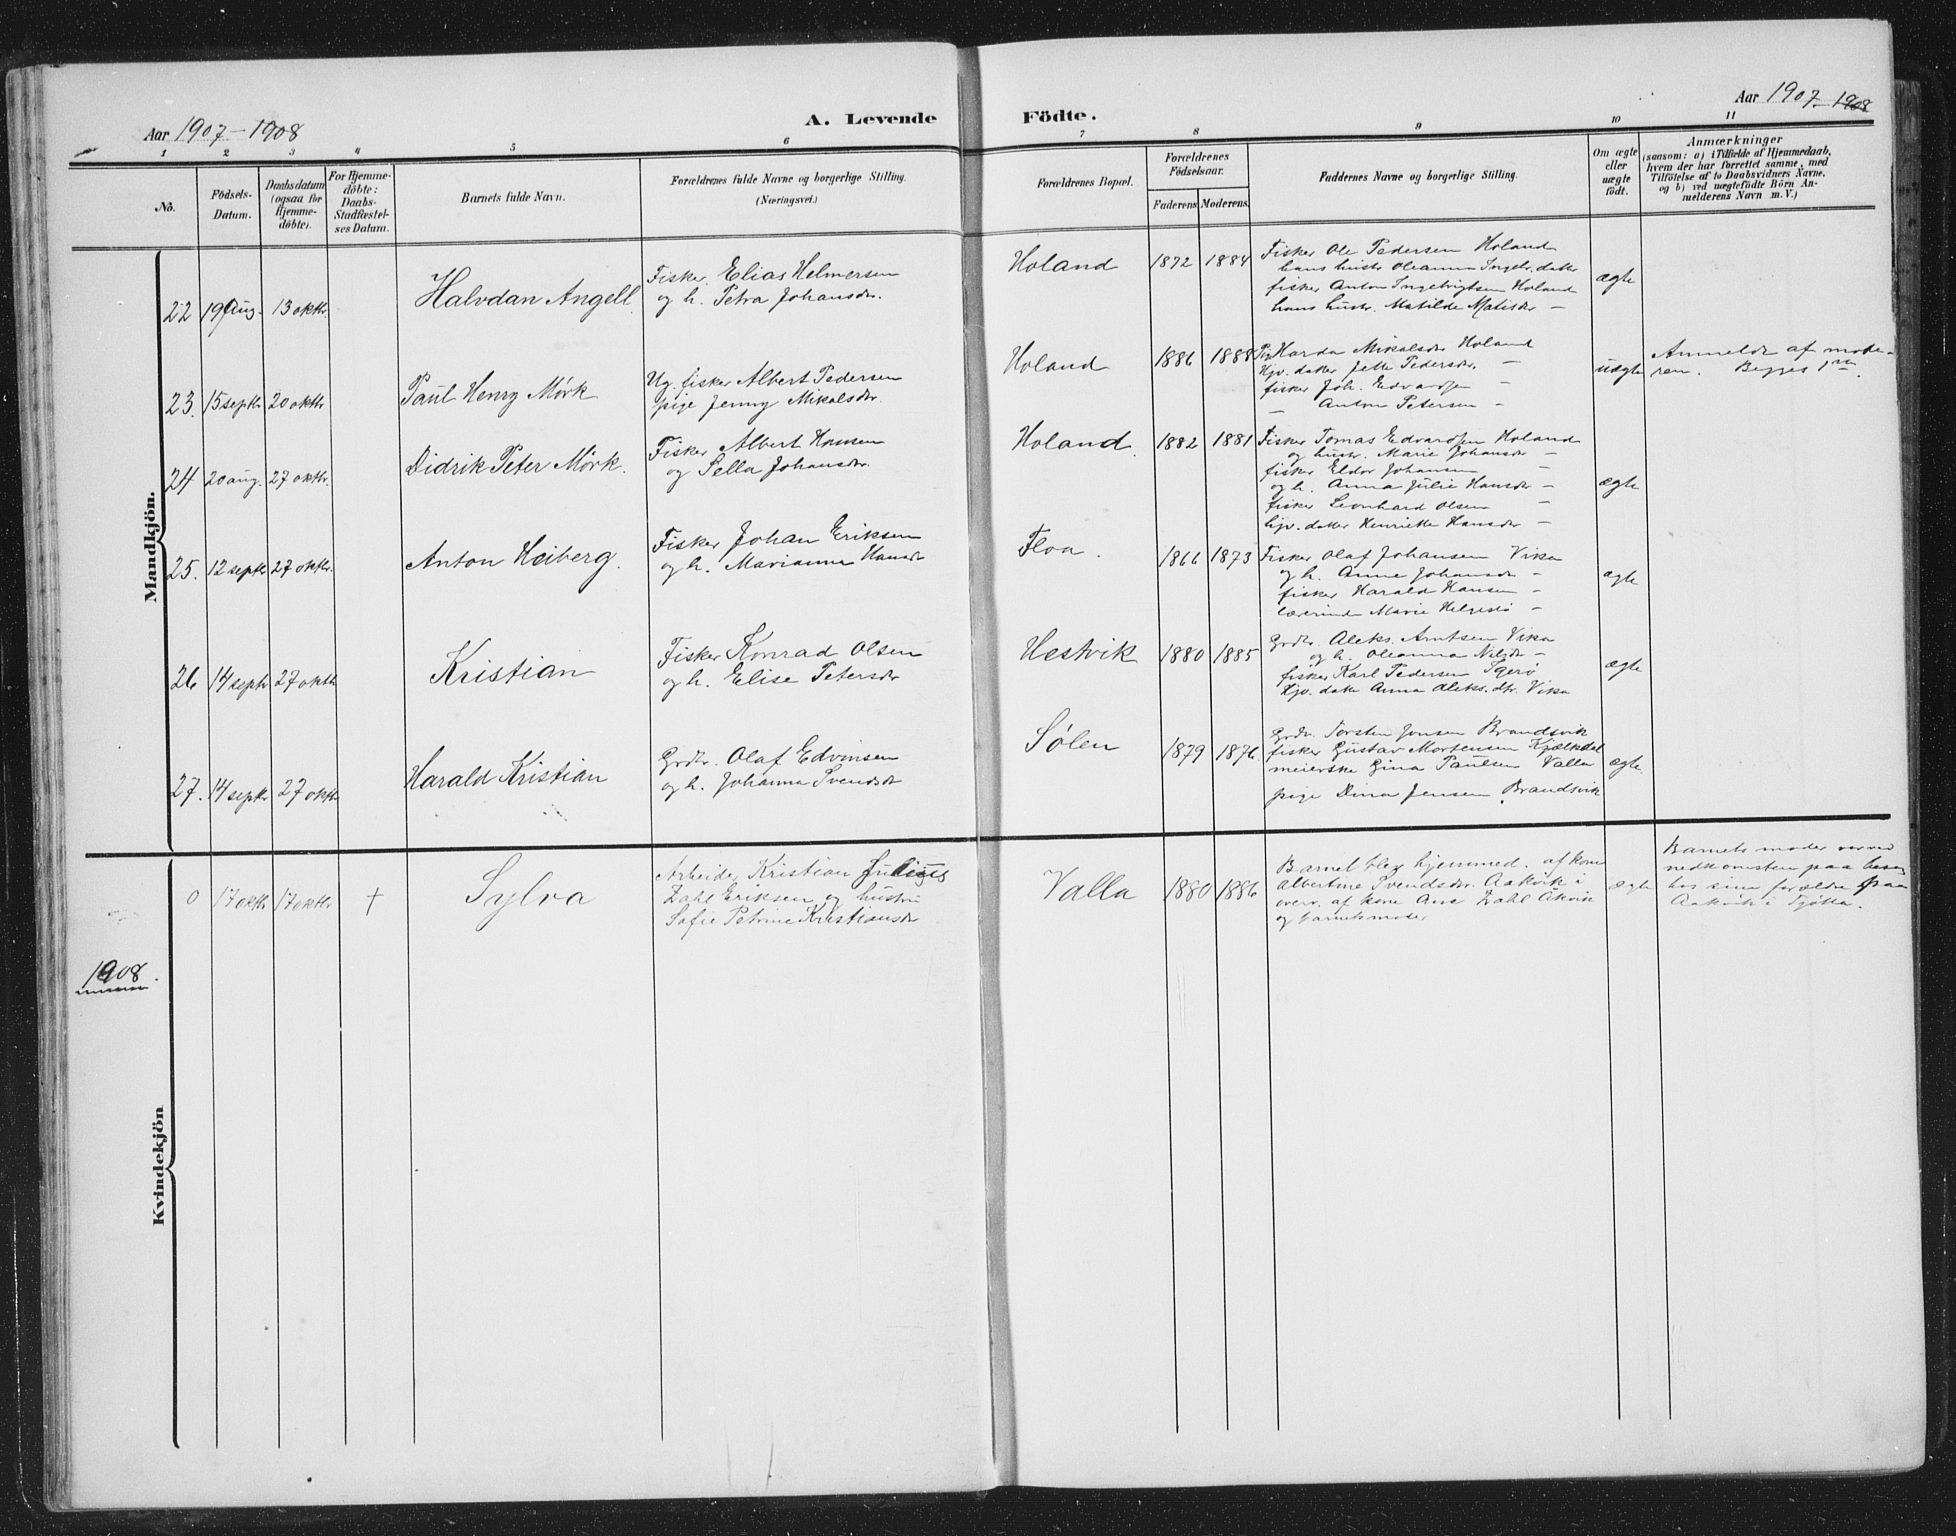 Aar 1907-1908
A. Levende
Födte.
Aar 1907-1908
1 2 3 4 5 6 7 8 9 10 11
No.
Födsels-
Datum.
Daabsdatum
(ogsaa for
Hjemme-
döbte).
For Hjemme-
döbte:
Daabs-
Stadfæstel-
ses Datum.
Barnets fulde Navn.
Forældrenes fulde Navne og borgerlige Stilling.
(Næringsvei.)
Forældrenes Bopæl.
Forældrenes
Födselsaar.
Faderens. Moderens.
Faddernes Navne og borgerlige Stilling.
Om ægte
eller
uægte
födt.
Anmærkninger
(saasom: a) i Tilfælde af Hjemmedaab,
hvem der har forrettet samme, med
Tilföielse af to Daabsvidners Navne,
og b) ved uægtefödte Börn An-
melderens Navn m. V.)
Mandkjön.
22 19 Aug. 13 oktbr. Halvdan Angell
Fisker Elias Helmersen
og h. Petra Johansdr.
Holand 1872 1884
Fisker Ole Pedersen Holand
hans hustr Oleanna Ingebr. datter
fisker Anton Ingebrigtsen Holand
hans hustr. Matilde Matisdr —
ægte
23. 15 septbr 20 oktbr Paul Henry Mörk
Ug. fisker Albert Pedersen
pige Jenny Mikalsdr.
Holand 1886 1888
Harda Mikalsdr Holand
Hjv. datter Jette Pedersdr. —
fisker Joh. Edvardsen —
— Anton Petersen —
uægte
Anmeldt af mode-
ren. Begges 1ste.
24 20 aug. 27 oktbr. Didrik Peter Mörk.
Fisker Albert Hansen
og Sella Johansdr.
Holand. 1882 1881
Fisker Tomas Edvardsen Holand
og hustr. Marie Johansdr —
fisker Eldor Johansen —
og h. Anna Julie Hansdr —
fisker Leonhard Olsen —
hjv. datter Henriette Hansdr —
ægte
25. 12 septbr 27 oktbr. Anton Heiberg.
Fisker Johan Eriksen
og h. Marianna Hansdr
Floa. 1866 1873
Fisker Olaf Johansen Vika
og h. Anne Johansdr —
fisker Harald Hansen —
lærerinde Marie Helgesø —
ægte
26 14 septbr 27 oktbr Kristian
Fisker Konrad Olsen
og h. Elise Petersdr
Hestvik 1880 1885
Grdbr. Aleks. Arntsen Vika
og h. Oleanna Nilsdr —
fisker Karl Pedersen
Hjv. datter Anna Aleks. dtr. Vika
ægte
27. 14 septbr 27 oktbr Harald Kristian
Grdbr. Olaf Edvinsen
og h. Johanna Svendsdr
Sölen 1879 1876.
Grdbr. Torsten Jensen Brandsvik
fisker Gustav Mortensen Kjælkdal
meierske Gina Paulsen Valla
pige Dina Jensen Brandsvik
ægte.
Kvindekjön
0 17 oktbr 17 oktbr † Sylva
Arbeider Kristian
Dahl Eriksen og hustru
Sofie Petrine Kristiansdr
Valla 1880 1886
Barnet blev hjemmed. af kone
Albertine Svendsdr. Aakvik i
overv. af kone Ane Dahl Åkvik
og barnets moder
ægte
Barnets moder var ved
nedkomsten paa besøg
hos sine forældre paa
Aakvik i Tjötta.
1908.